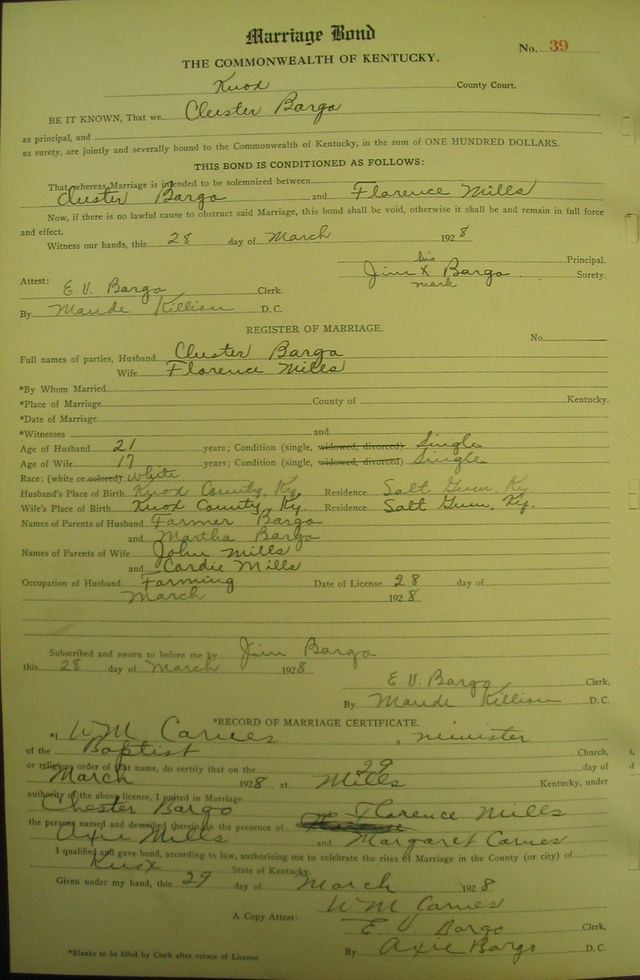 Marriage Bond
No. 39
THE COMMONWEALTH OF KENTUCKY.
Knox County Court.
BE IT KNOWN, That we Cluster Bargo
as principal, and
as surety, are jointly and severally bound to the Commonwealth of Kentucky, in the sum of ONE HUNDRED DOLLARS.
THIS BOND IS CONDITIONED AS FOLLOWS:
That, whereas Marriage is intended to be solemnized between
Cluster Bargo and Florence Mills
Now, if there is no lawful cause to obstruct said Marriage, this bond shall be void, otherwise it shall be and remain in full force
and effect.
Witness our hands, this 28 day of March 1928
Principal.
his
Jim X Bargo Surety.
mark
Attest: E. V. Bargo Clerk.
By Maude Killion D. C.
REGISTER OF MARRIAGE.
No.
Full names of parties, Husband Cluster Bargo
Wife Florence Mills
*By Whom Married
*Place of Marriage County of Kentucky.
*Date of Marriage
*Witnesses and
Age of Husband 21 years; Condition (single, widowed, divorced) Single
Age of Wife 17 years; Condition (single, widowed, divorced) Single
Race: (white or colored) White
Husband's Place of Birth Knox County, Ky Residence Salt Gum, Ky
Wife's Place of Birth Knox County, Ky Residence Salt Gum, Ky.
Names of Parents of Husband Farmer Bargo
and Martha Bargo
Names of Parents of Wife John Mills
and Cordie Mills
Occupation of Husband Farming Date of License 28 day of
March 1928
Subscribed and sworn to before me by Jim Bargo
this 28 day of March 1928
E. V. Bargo Clerk,
By Maude Killion D. C.
*RECORD OF MARRIAGE CERTIFICATE.
*I WM Carnes, minister
of the Baptist Church,
or religious order of that name, do certify that on the 29 day of
March 1928, at Mills Kentucky, under
authority of the above license, I united in Marriage
Chester Bargo and Florence Mills
the persons named and described therein, in the presence of
Axie Mills and Margaret Carnes
I qualified and gave bond, according to law, authorizing me to celebrate the rites of Marriage in the County (or city) of
Knox State of Kentucky.
Given under my hand, this 29 day of March 1928
WM Carnes
A Copy Attest: E V Bargo Clerk,
By Axie Bargo D. C.
*Blanks to be filled by Clerk after return of License.